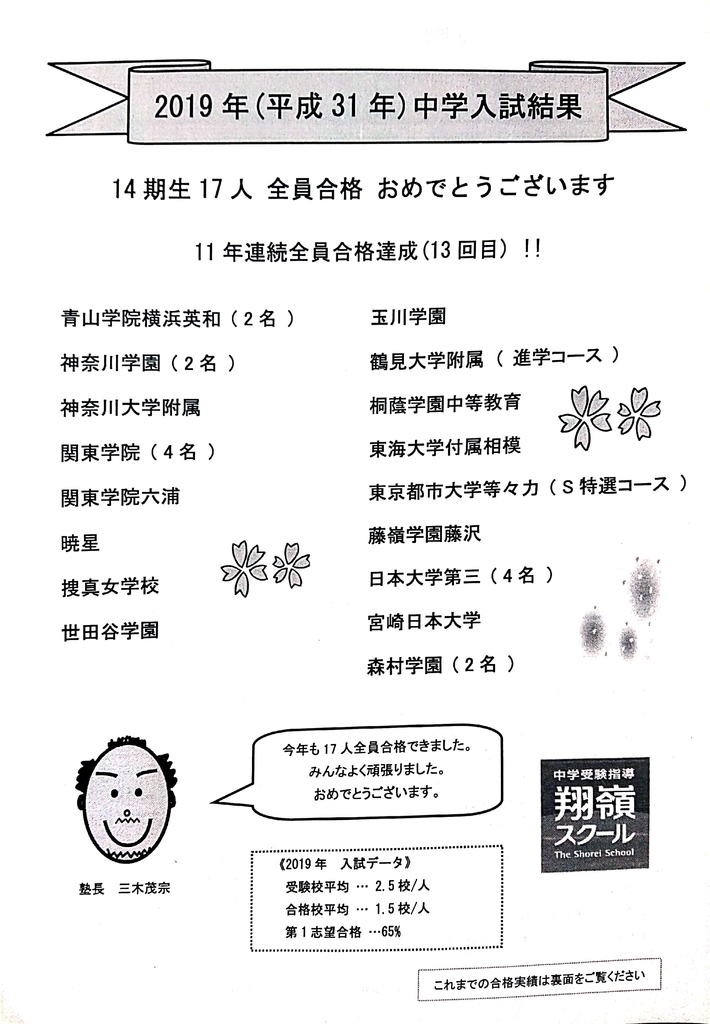 2019 年(平成 31 年)中学入試結果
14 期生 17 人 全員合格 おめでとうございます
11 年連続全員合格達成(13 回目) !!
青山学院横浜英和(2 名)
神奈川学園(2 名)
神奈川大学附属
関東学院(4 名)
関東学院六浦
暁星
捜真女学校
世田谷学園
玉川学園
鶴見大学附属(進学コース)
桐蔭学園中等教育
東海大学付属相模
東京都市大学等々力(S 特選コース)
藤嶺学園藤沢
日本大学第三(4 名)
宮崎日本大学
森村学園(2 名)
今年も 17 人全員合格できました。
みんなよく頑張りました。
おめでとうございます。
塾長 三木茂宗
《2019 年 入試データ》
受験校平均 … 2.5 校/人
合格校平均 … 1.5 校/人
第 1 志望合格 …65%
中学受験指導
翔嶺
スクール
The Shorei School
これまでの合格実績は裏面をご覧ください